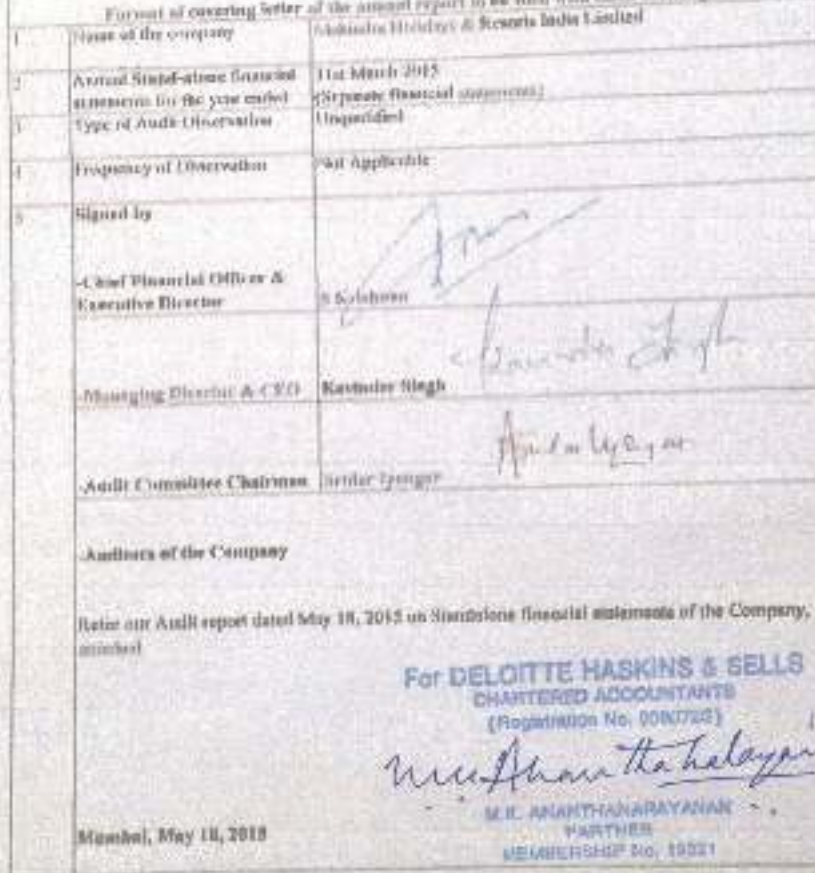 Format of covering letter of the annual report to be filed with
1 Name of the company Mahindra Holidays & Resorts India Limited
2 Annual Stand-alone financial statements for the year ended 31st March 2015
(Separate financial statements)
3 Type of Audit Observation Unqualified
4 Frequency of Observation Not Applicable
5 Signed by
-Chief Financial Officer &
Executive Director S Krishnan
-Managing Director & CEO Kavinder Singh
-Audit Committee Chairman Sridar Iyengar
-Auditors of the Company
Refer our Audit report dated May 18, 2015 on Standalone financial statements of the Company,
attached
For DELOITTE HASKINS & SELLS
CHARTERED ACCOUNTANTS
(Registration No.
M.K. ANANTHANARAYANAN
PARTNER
MEMBERSHIP No. 19521
Mumbai, May 18, 2015